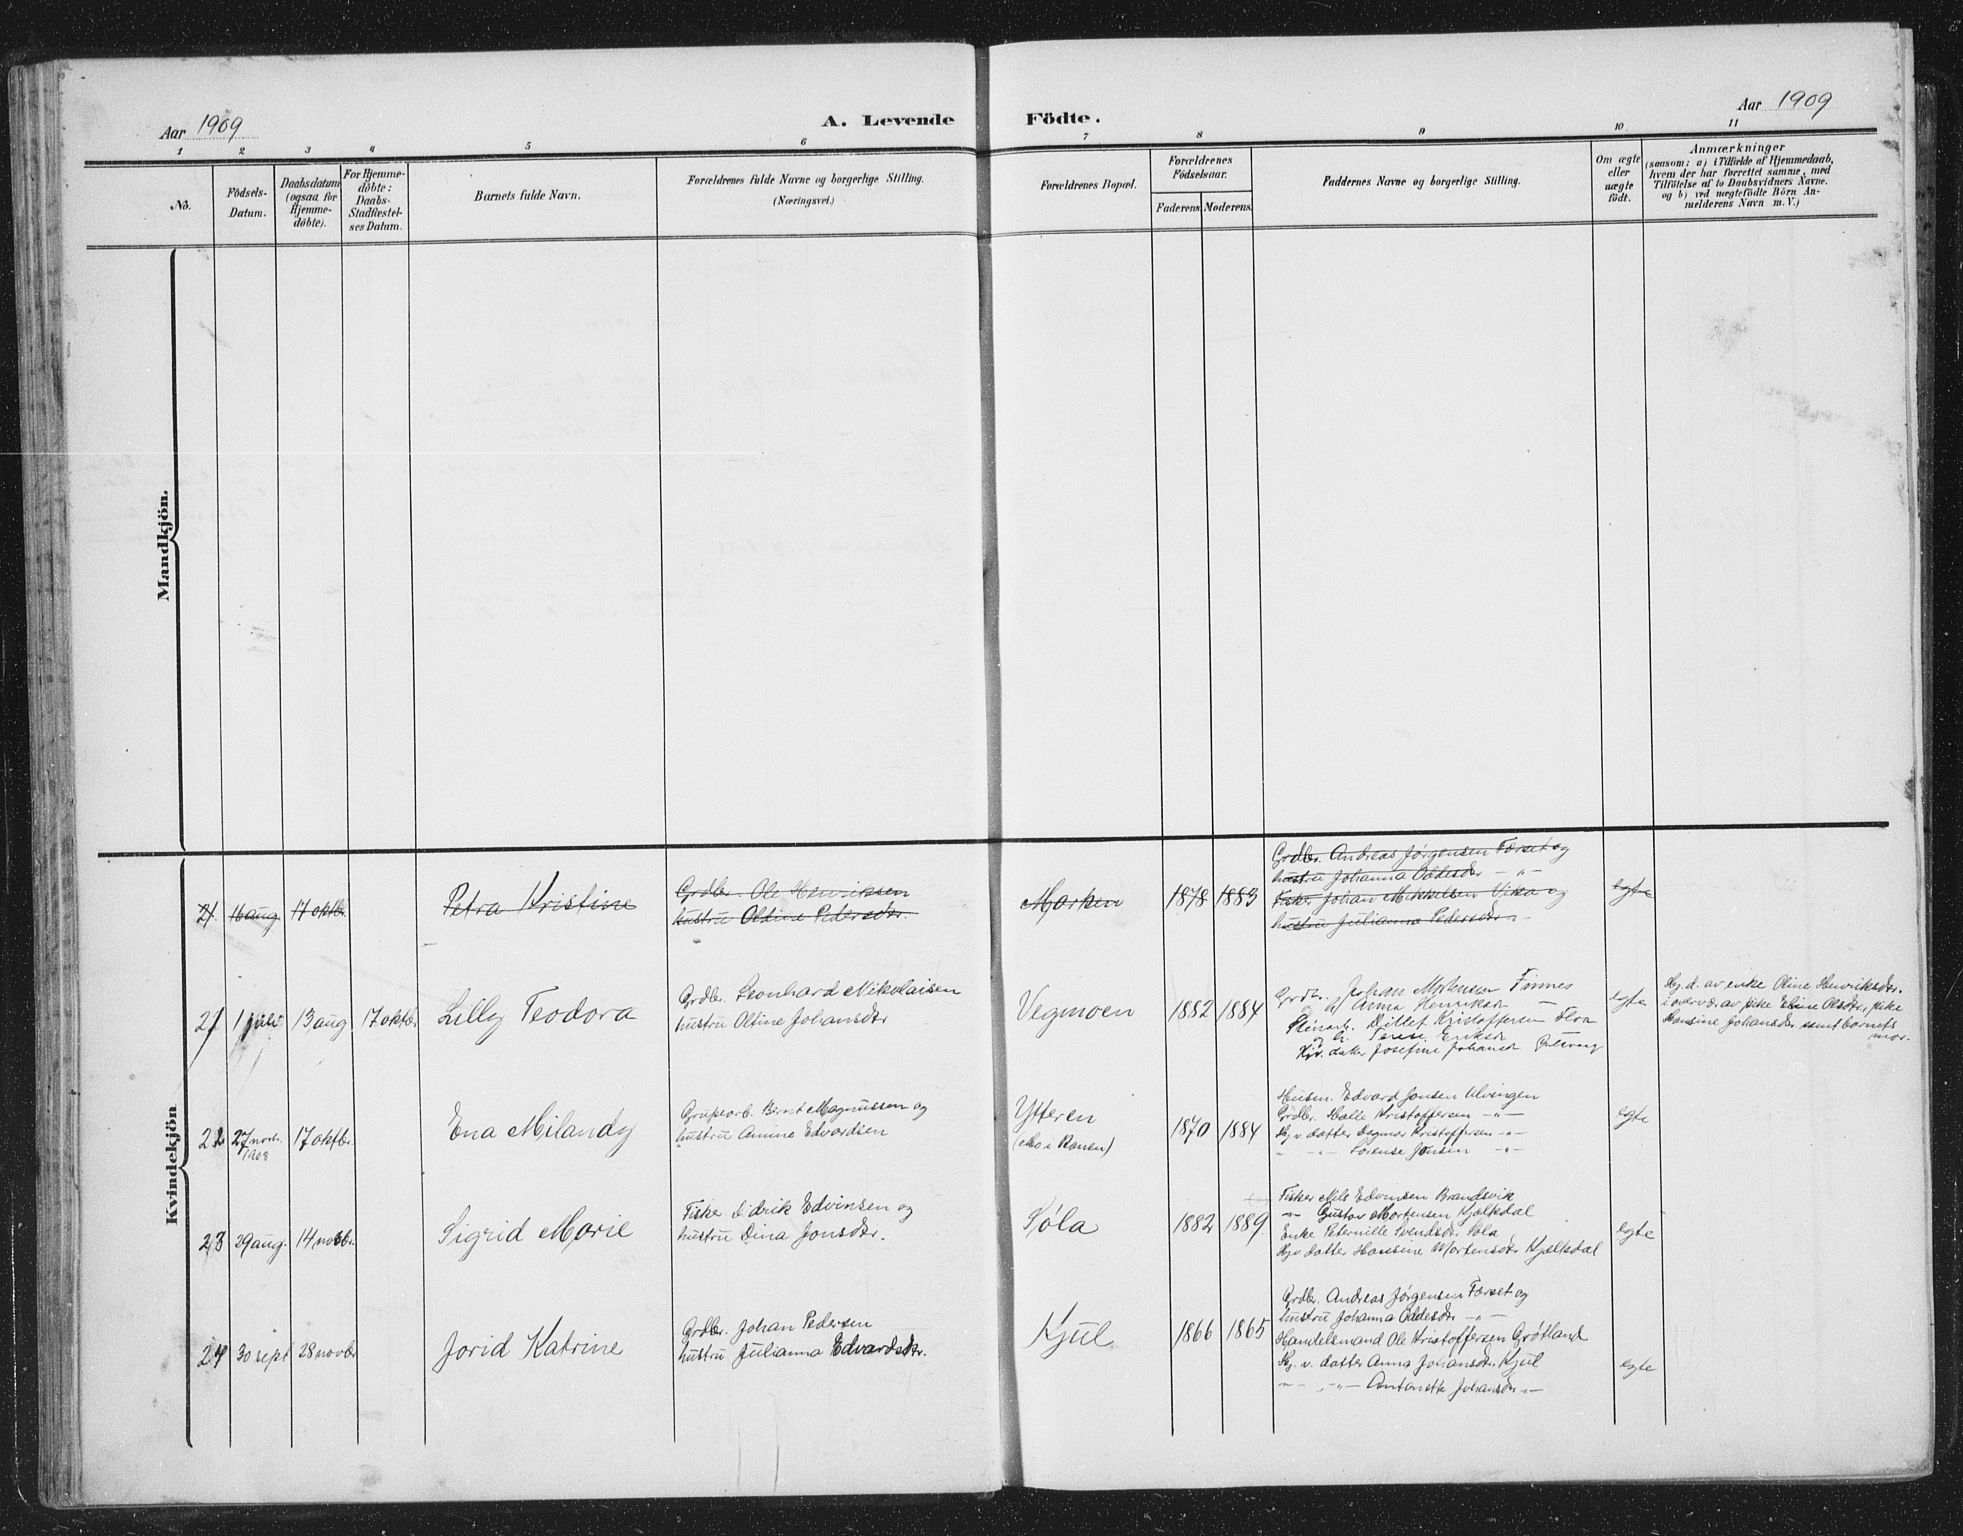 Aar 1909
A. Levende Födte.
Aar 1909
1 2 3 4 5 6 7 8 9 10 11
No.
Födsels-Datum.
Daabsdatum (ogsaa for Hjemme-döbte).
For Hjemme-döbte: Daabs-Stadfæstel-ses Datum.
Barnets fulde Navn.
Forældrenes fulde Navne og borgerlige Stilling. (Næringsvei.)
Forældrenes Bopæl.
Forældrenes Födselsaar.
Faderens. Moderens.
Faddernes Navne og borgerlige Stilling.
Om ægte eller uægte födt.
Anmærkninger
(saasom: a) i Tilfælde af Hjemmedaab,
hvem der har forrettet samme, med
Tilföielse af to Daabsvidners Navne.
og b) ved uægtefödte Börn An-
melderens Navn m. V.)
Mandkjön.
Kvindekjön
21 16 aug 17 oktbr. Petra Kristine
Grdbr. Ole Henriksen
hustru Oldine Pedersdr.
Marken 1878 1883
Grdbr. Andreas Jørgensen Forset og
hustru Johanna Oddesdr — " —
Fisker Johan Mikkelsen Vika og
hustru Julianna Pedersdr
egte
21 1 juli 13 aug 17 oktbr Lilly Teodora
Grdb. Leonhard Nikolaisen
hustru Oltine Johansdr
Vegmoen 1882 1884
Grdb. Johan Mortensen Finnes
Anna Henriksdr —
Ditlef Kristoffersen
og h. Eriksdr —
Kjv. datter Josefine Johansdr
egte
Hj. d. av enke Oline Henriksdr.
i overvær av pike Eline Olsdr, pike
Hansine Johansdr samt barnets
mor.
22 27 novbr. 1908 17 oktbr. Ena Milandy
Grubearb. Bernt Magnussen og
hustru Amine Edvardsen
Ytteren
(Mo i Ranen)
1870 1884
Husm. Edvard Jonsen Alvingen
Grdbr. Halle Kristoffersen — " —
Hj. v. datter Dagmar Kristoffersen — " —
— " — Lorense Jonsen — " —
egte
23 29 aug. 14 novbr. Sigrid Marie
Fisker Didrik Edvinsen og
hustru Dina Jonsdr.
Søla 1882 1889.
Fisker Nils Edvinsen Brandsvik
— " — Gustav Mortensen Kjelkdal
Enke Peternille Svendsdr Søla
Hj. v. datter Hansine Mortensdr Kjelkdal
egte
24 30 sept 28 novbr Jorid Katrine
Grdbr. Johan Pedersen
hustru Julianna Edvardsdr.
Kjul 1866 1865
Grdbr. Andreas Jørgensen Forset og
hustru Johanna Oddesdr — " —
Handelsmand Ole Kristoffersen Grøtland
Hj. v. datter Anna Johansdr. Kjul
— " — " — Antonette Johansdr — " —
egte